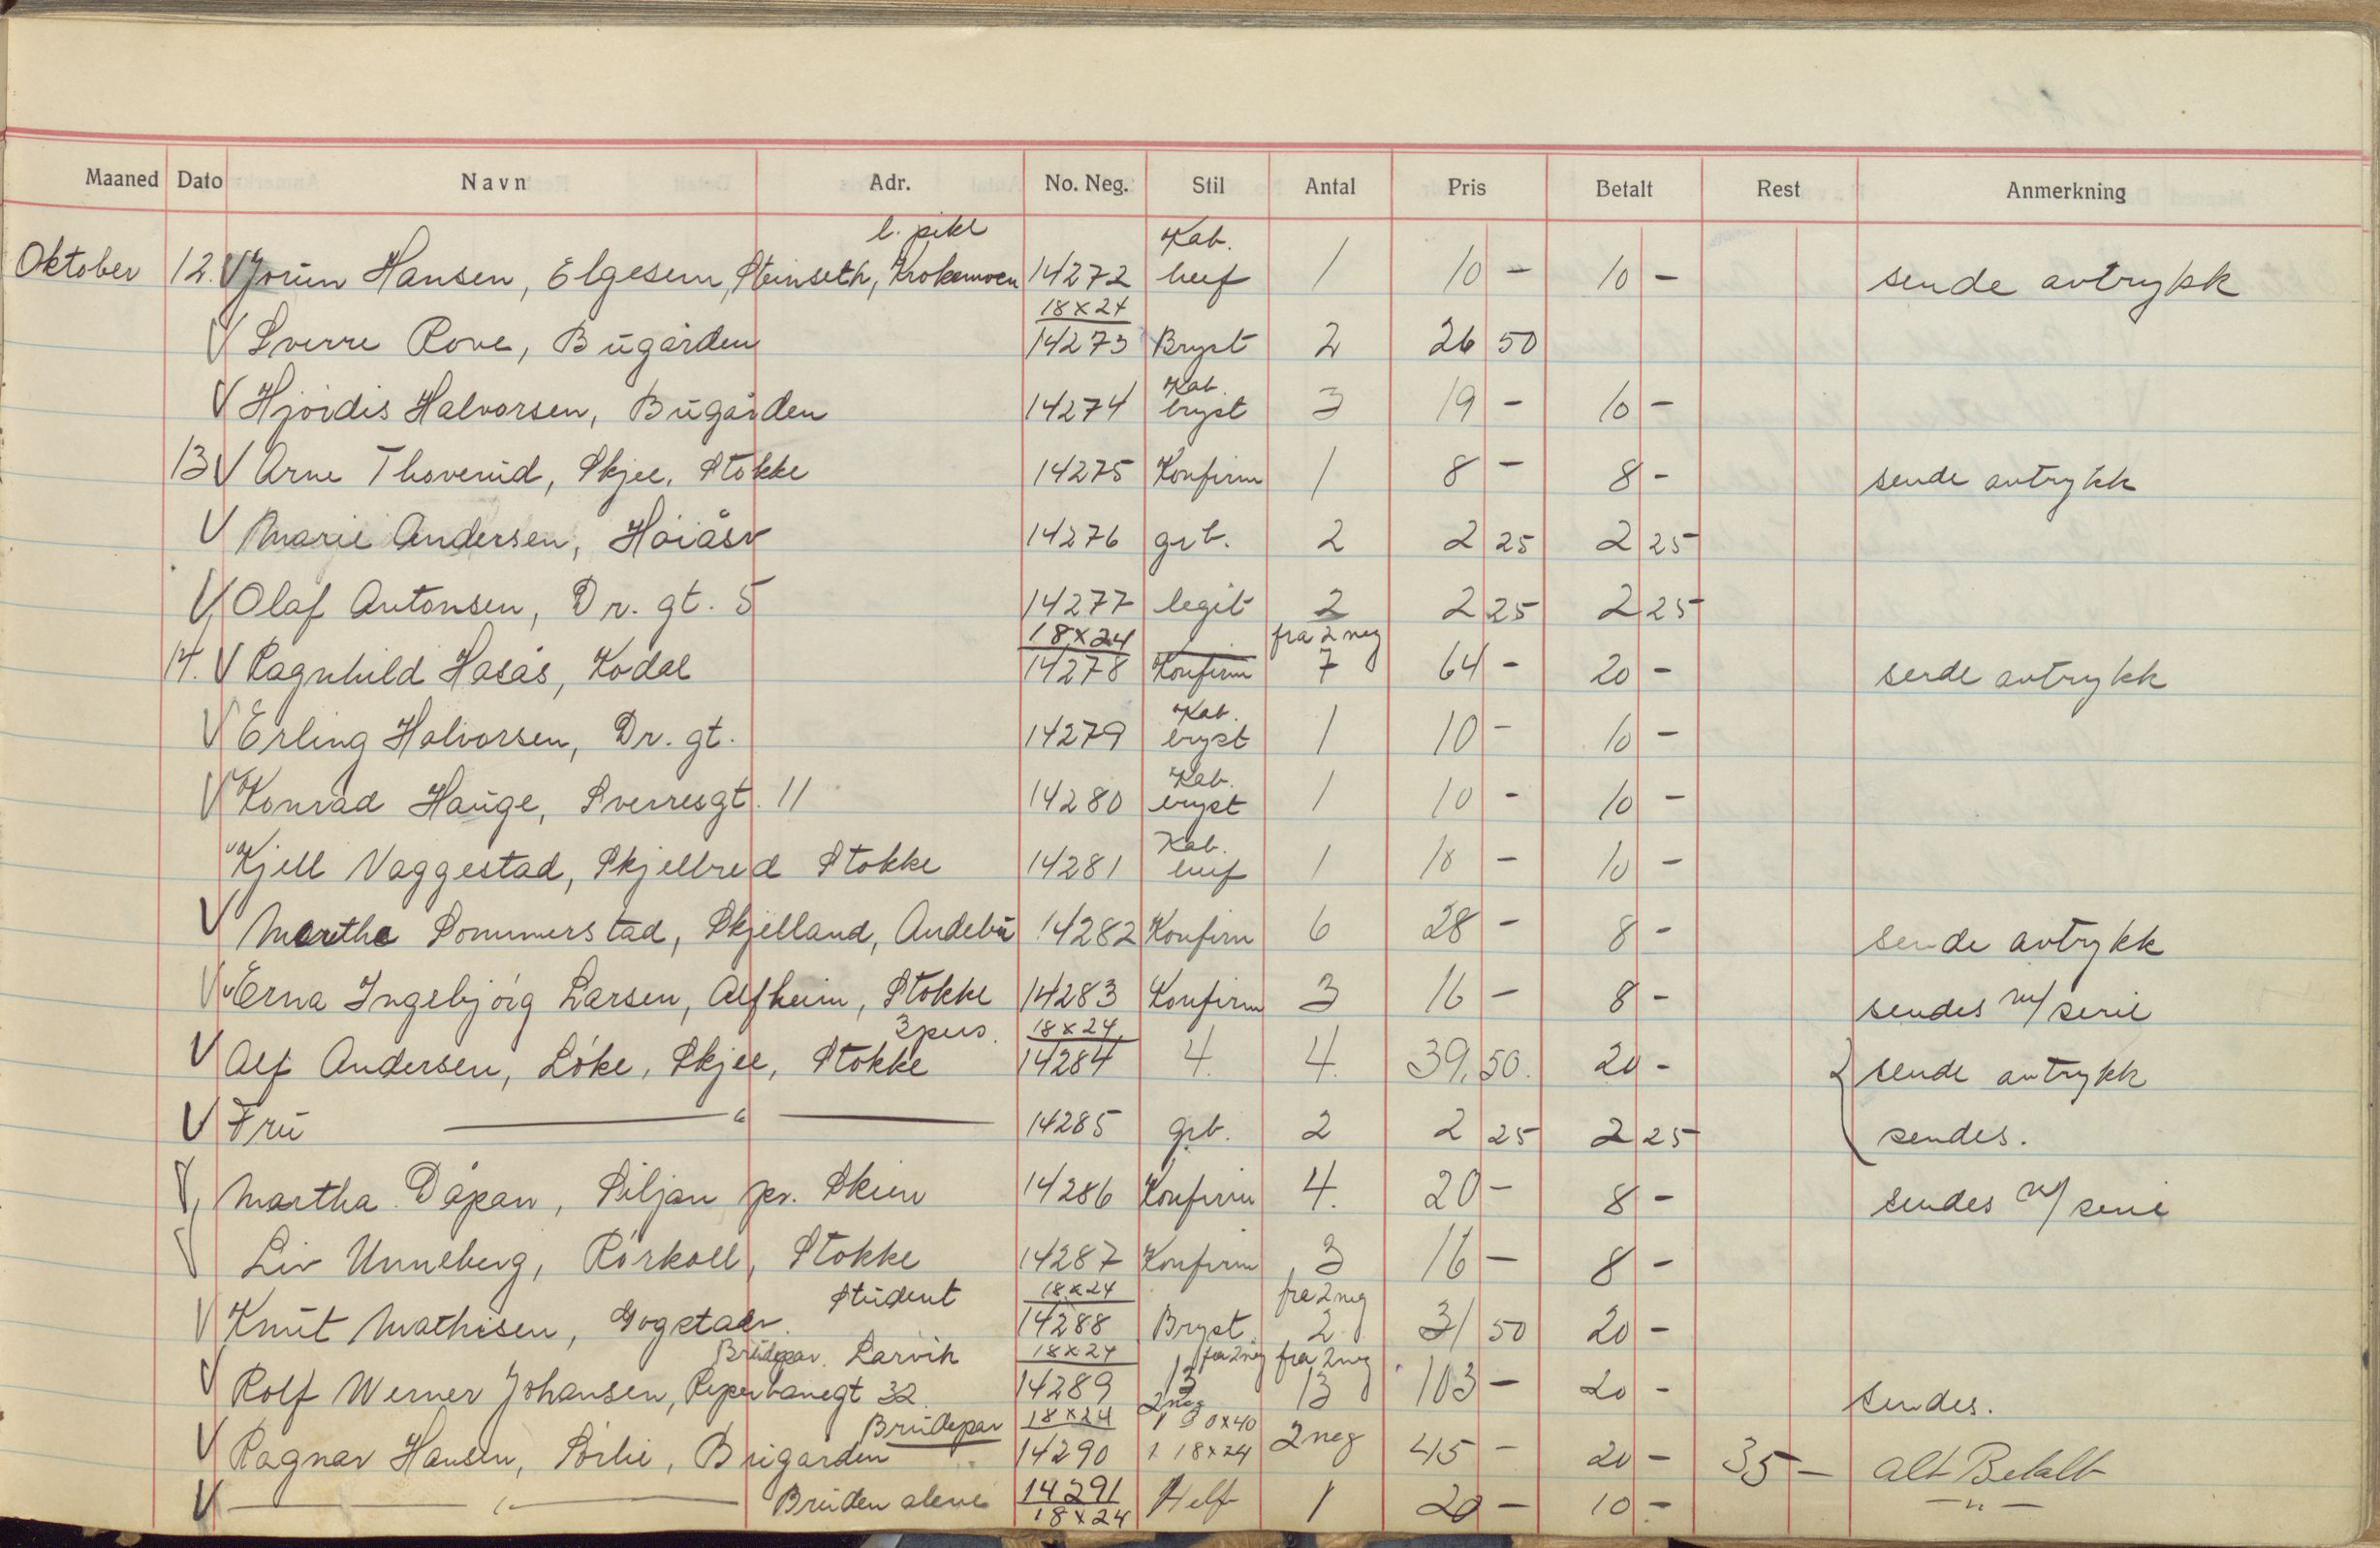 Maaned Dato Navn Adr. No. Neg. Stil Antal Pris Betalt Rest Anmerkning
l. pike Kab.
Oktober 12. V Jorun Hansen, Elgesem, Steinseth, Krokemoen 14272 1 10 - 10 - sende avtrykk
18x24
V Sverre Rove, Bugården 14273 Bryst 2 26 50
Kab.
V Hjördis Halvorsen, Bugården 14274 bryst 3 19 - 10 -
13 V Arne Thoverud, Skjee, Stokke 14275 Konfirm 1 8 - 8 - sende avtrykk
V Marie Andersen, Höiåsv 14276 grb. 2 2 25 2 25
V Olaf Antonsen, Dr. gt. 5 14277 legit 2 2 25 2 25
18x24 fra 2 neg
14. V Ragnhild Hasås, Kodal 14278 Konfirm 7 64 - 20 - sende avtrykk
Kab.
V Erling Halvorsen, Dr. gt. 14279 bryst 1 10 - 10 -
Kab.
V Konrad Hauge, Sverresgt. 11 14280 bryst 1 10 - 10 -
Kab.
Kjell Vaggestad, Skjellbred Stokke 14281 1 10 - 10 -
V Marthe Sommerstad, Skjelland, Andebu 14282 Konfirm 6 28 - 8 - sende avtrykk
V Erna Ingebjörg Larsen, Alfheim, Stokke 14283 Konfirm 3 16 - 8 - sendes m/ serie
3 pers. 18x24
V Alf Andersen, Löke, Skjee, Stokke 14284 4. 4. 39,50. 20 - sende avtrykk
V Fru — " — 14285 grb. 2 2 25 2 25 sendes.
V Martha Dåpan, Siljan pr. Skien 14286 Konfirm 4. 20 - 8 - sendes m/ serie
V Liv Unneberg, Rörkoll, Stokke 14287 Konfirm 3 16 - 8 -
Student 18x24 fra 2 neg
V Knut Mathisen, Gogstadv. 14288 Bryst 2 31 50 20 -
Brudepar. Larvik 18x24 fra 2 neg fra 2 neg
V Rolf Werner Johansen, Reperbanegt 32. 14289 13 13 103 - 20 - sendes.
Brudepar 18x24 2 neg 1 30x40
V Ragnar Hansen, Sörlie, Bugården 14290 1 18x24 2 neg 45 - 20 - 35 - alt Betalt
V — " — Bruden alene 14291 Helf 1 20 - 10 - — " —
18x24